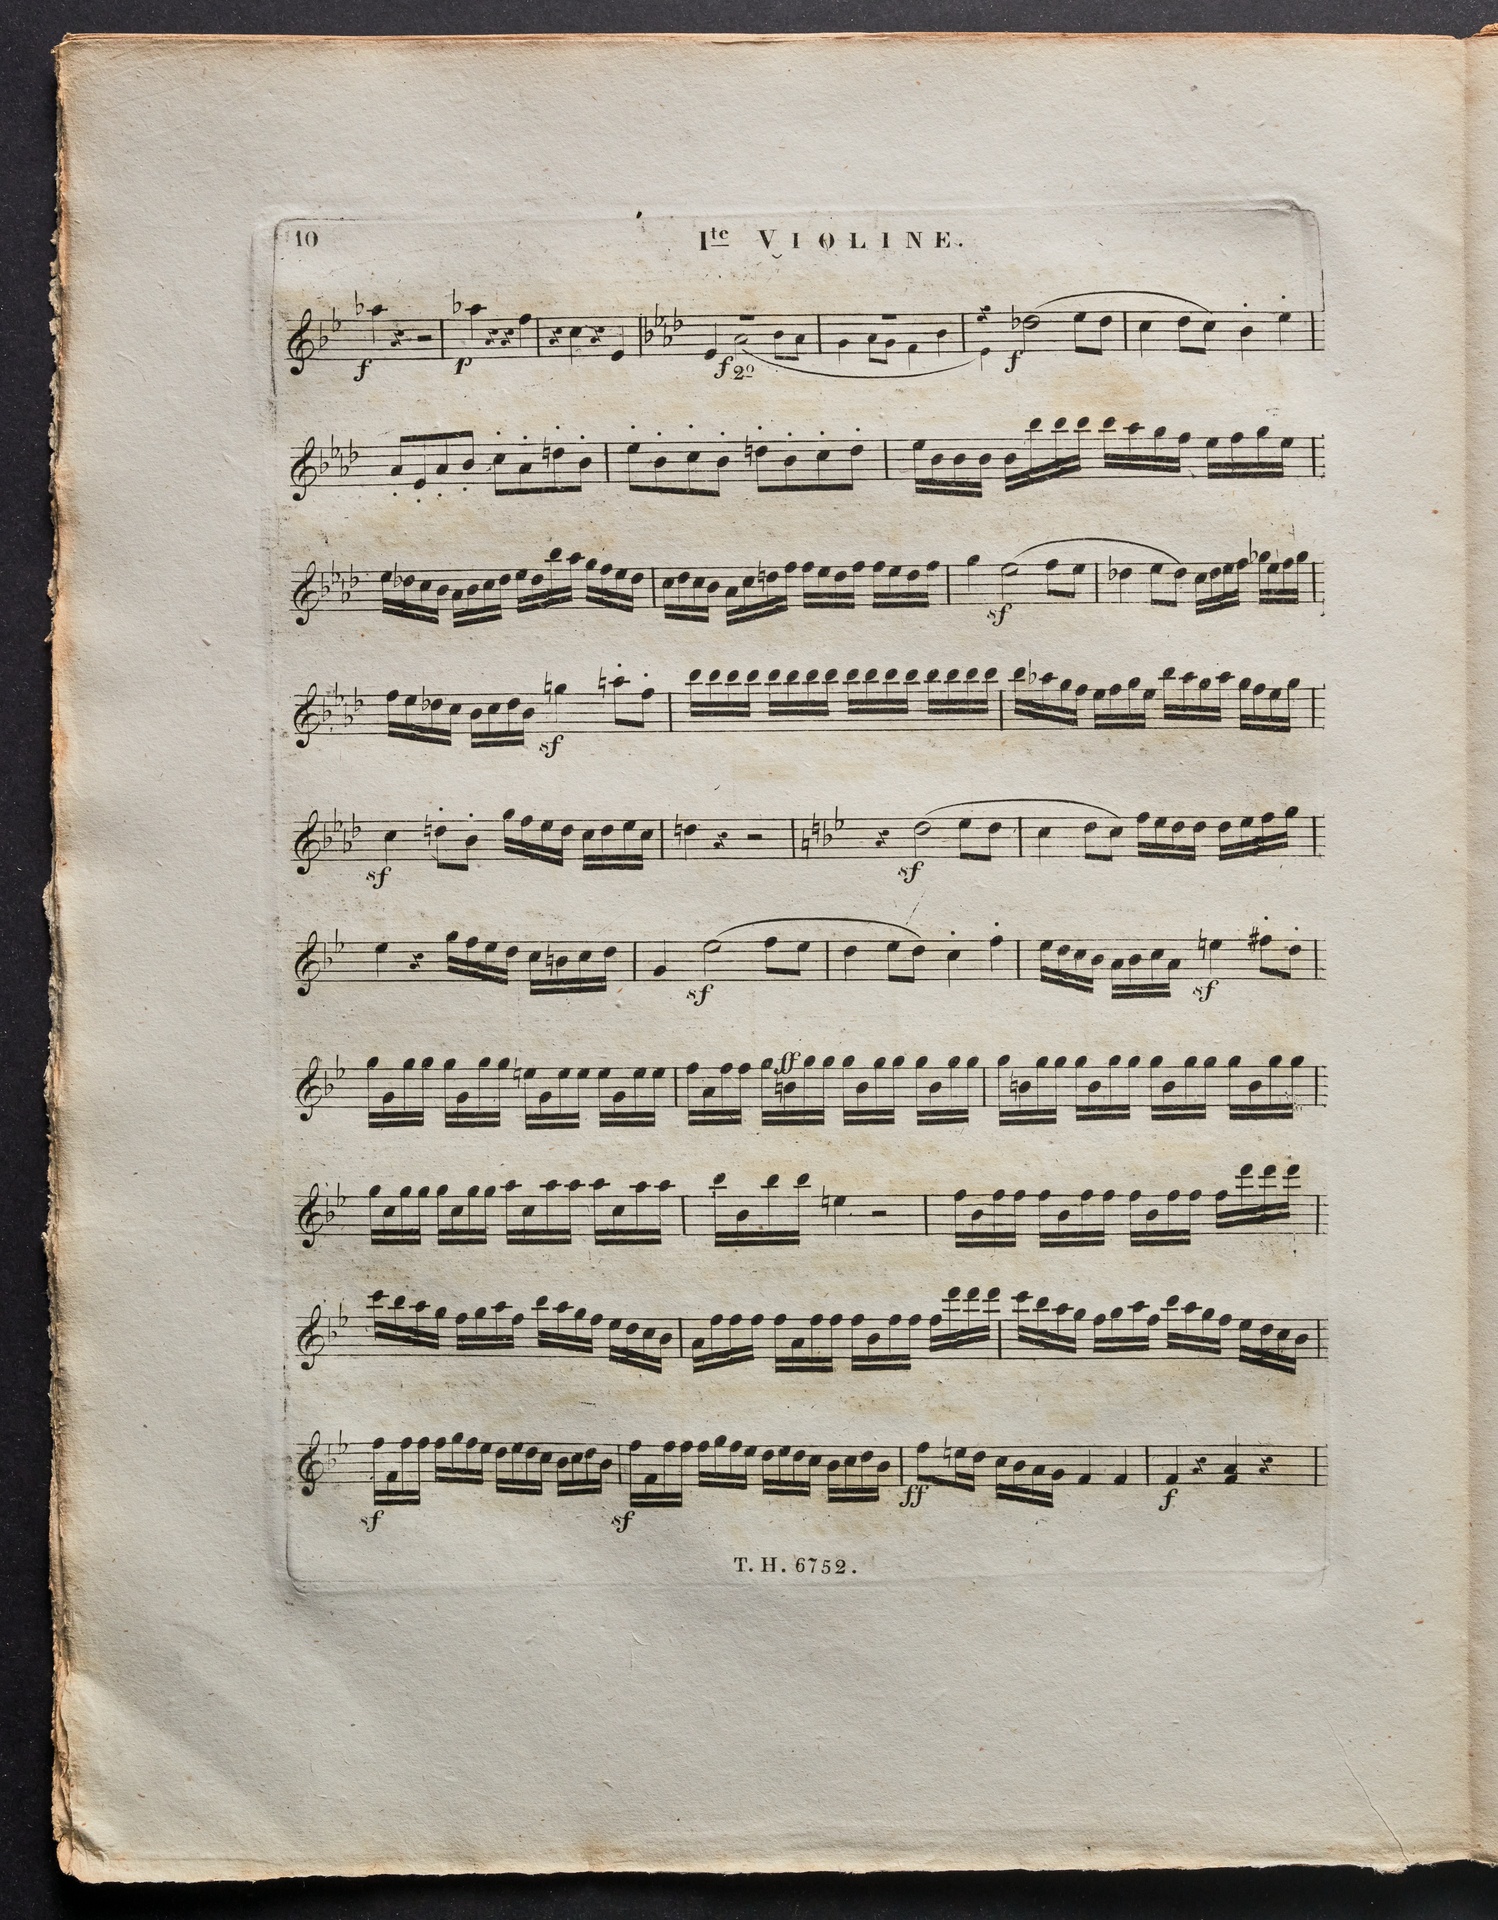 10
Ite VIOLINE.
f p f 2o f
sf
sf
sf sf
sf sf
ff
sf sf ff f
T. H. 6752.